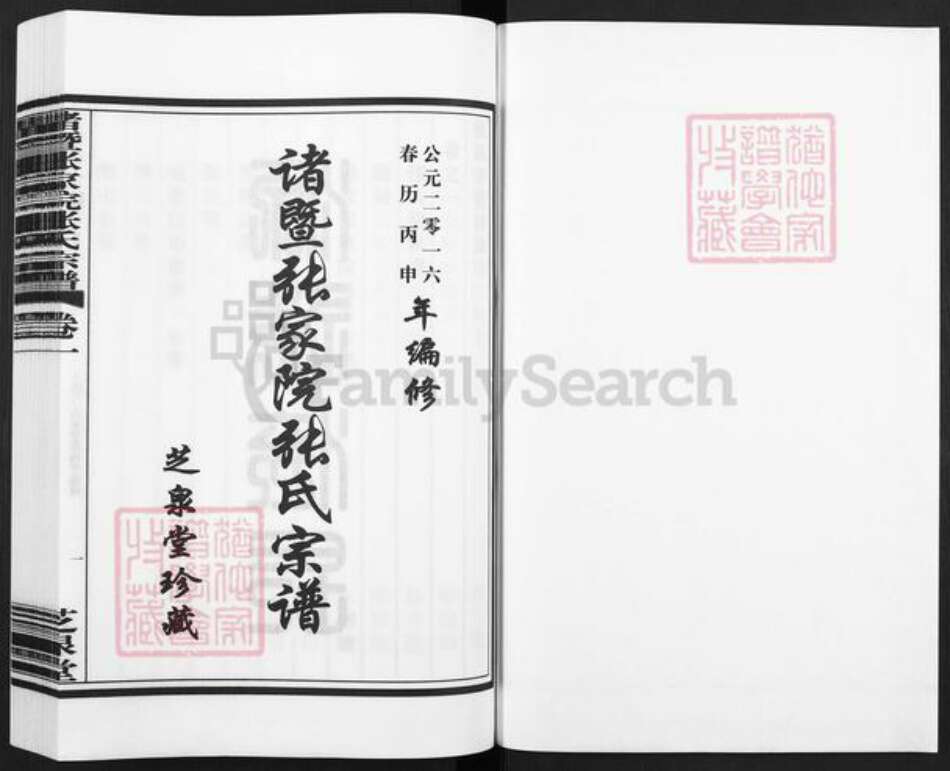 公元二零一六
春历丙申
年编修
诸暨张家院张氏宗谱
芝泉堂珍藏
诸暨张家院张氏宗谱
卷一
一
芝泉堂
猶他家
譜學會
收藏
猶他家
譜學會
收藏
FamilySearch